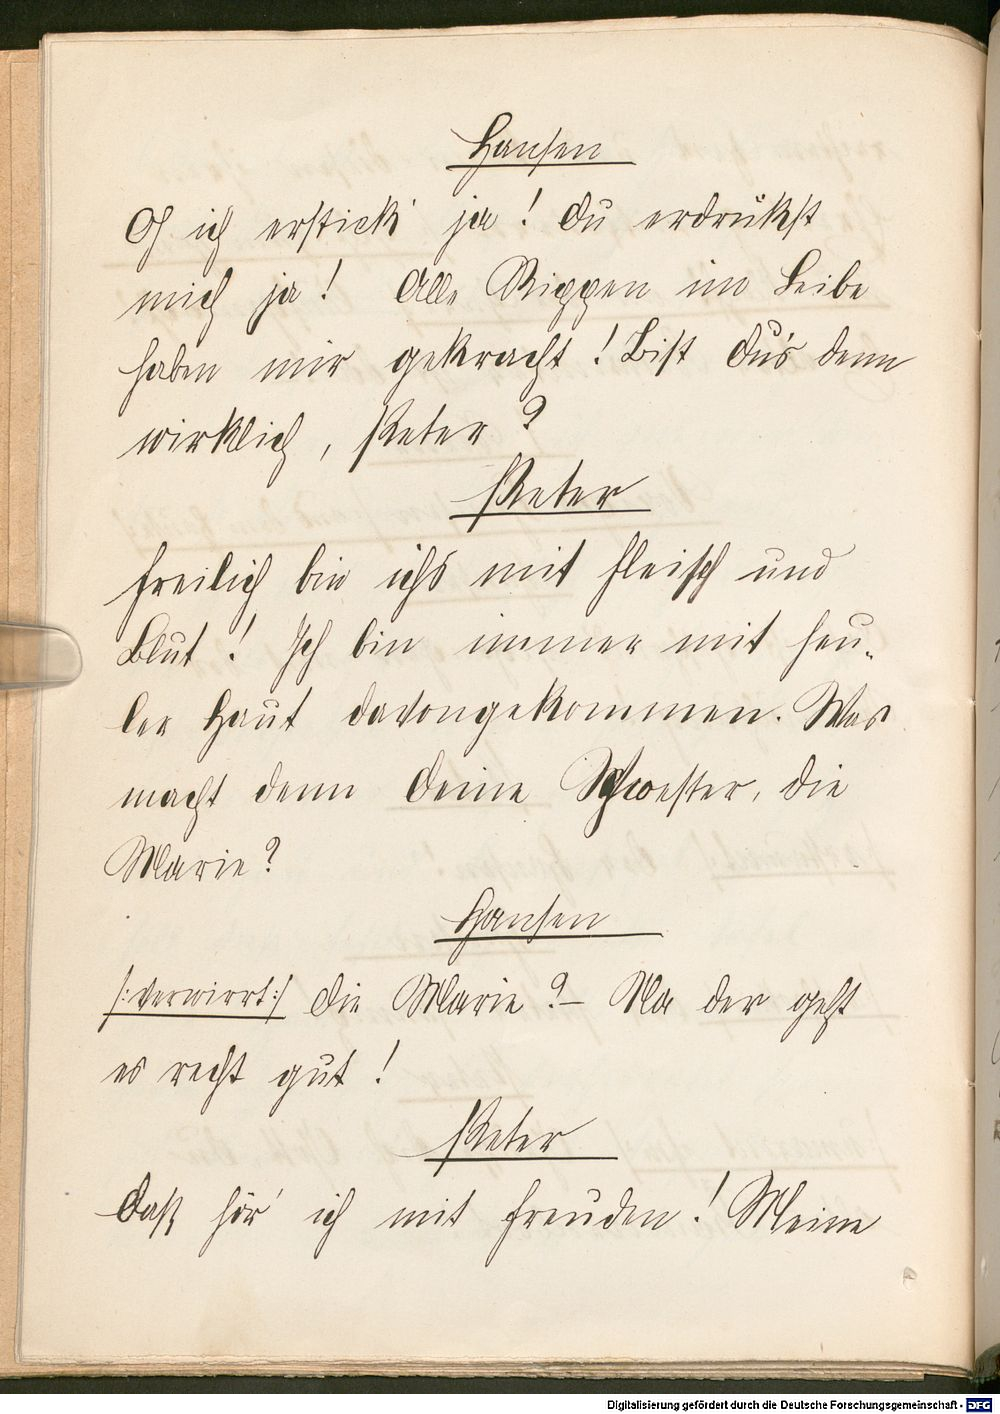 Hansen
Oh ich erstick' ja! Du erdrükst
mich ja! Alle Rippen im Leibe
haben mir gekracht! Bist du's denn
wirklich, Peter?
Peter
Freilich bin ichs mit Fleisch und
Blut! Ich bin immer mit heu-
ler Haut davongekommen. Was
macht denn deine Schwester, die
Marie?
Hansen
/:verwirrt:/ Die Marie? – Na der geht
es recht gut!
Peter
Daß hör' ich mit Freuden! Meine
Digitalisierung gefördert durch die Deutsche Forschungsgemeinschaft - DFG